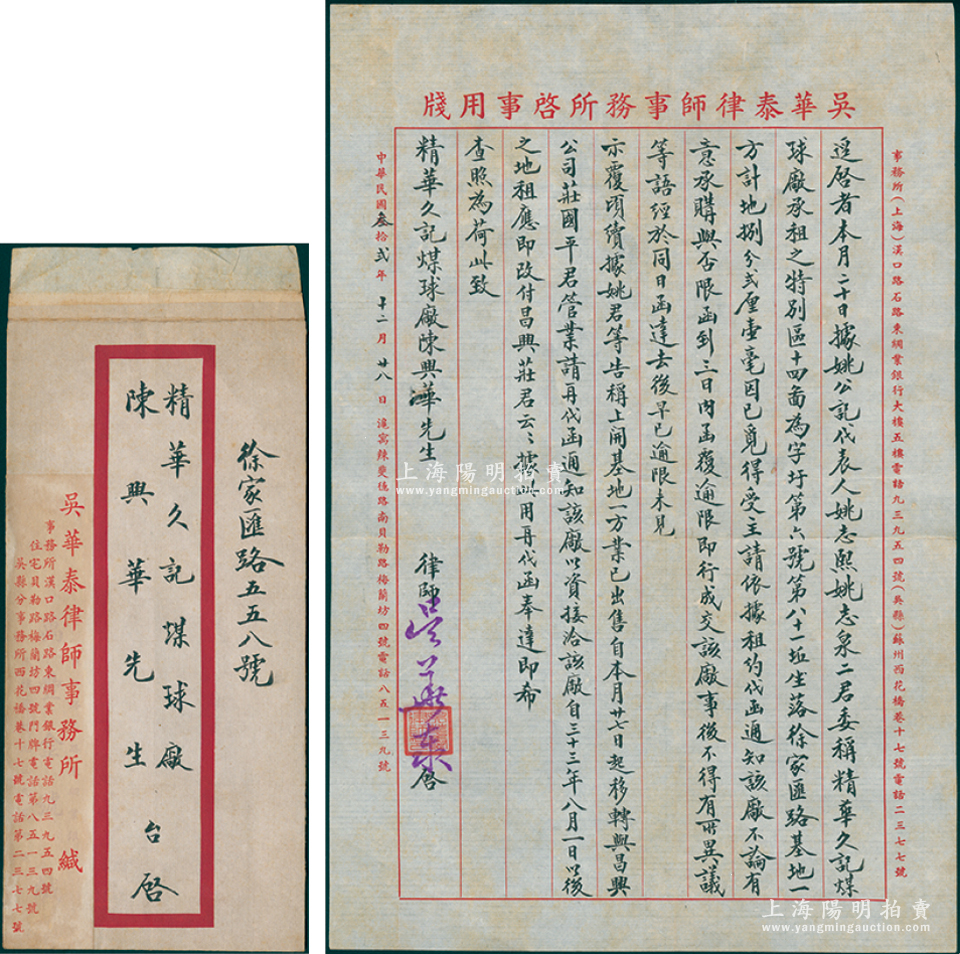 徐家匯路五五八號
精華久記煤球廠
陳興華先生 台啓
吳華泰律師事務所 緘
事務所漢口路石路東綢業銀行電話九三九五四號
住宅貝勒路梅蘭坊四號門牌電話第八五一三九號
吳縣分事務所西花橋巷十七號電話第二三七七號
吳華泰律師事務所啓事用牋
事務所(上海)漢口路石路東綢業銀行大樓五樓電話九三九五四號(吳縣)蘇州西花橋巷十七號電話二三七七號
逕啓者本月二十日據姚公記代表人姚志熙姚志泉二君委稱精華久記煤
球廠承租之特別區十四面為字圩第六號第八十一坵坐落徐家匯路基地一
方計地捌分弍厘壹毫因已覓得受主請依據租約代函通知該廠不論有
意承購與否限函到三日內函覆逾限即行成交該廠事後不得有所異議
等語經於同日函達去後早已逾限未見
示覆頃續據姚君等告稱上開基地一方業已出售自本月廿七日起移轉與昌興
公司莊國平君管業請再代函通知該廠以資接洽該廠自三十三年八月一日以後
之地租應即改付昌興莊君云云據此用再代函奉達即希
查照為荷此致
精華久記煤球廠陳興華先生
律師 吳華泰 啓
中華民國叁拾弍年十二月廿八日 滬寓辣斐德路南貝勒路梅蘭坊四號電話八五一三九號
上海陽明拍賣
www.yangmingauction.com
上海陽明拍賣
www.yangmingauction.com